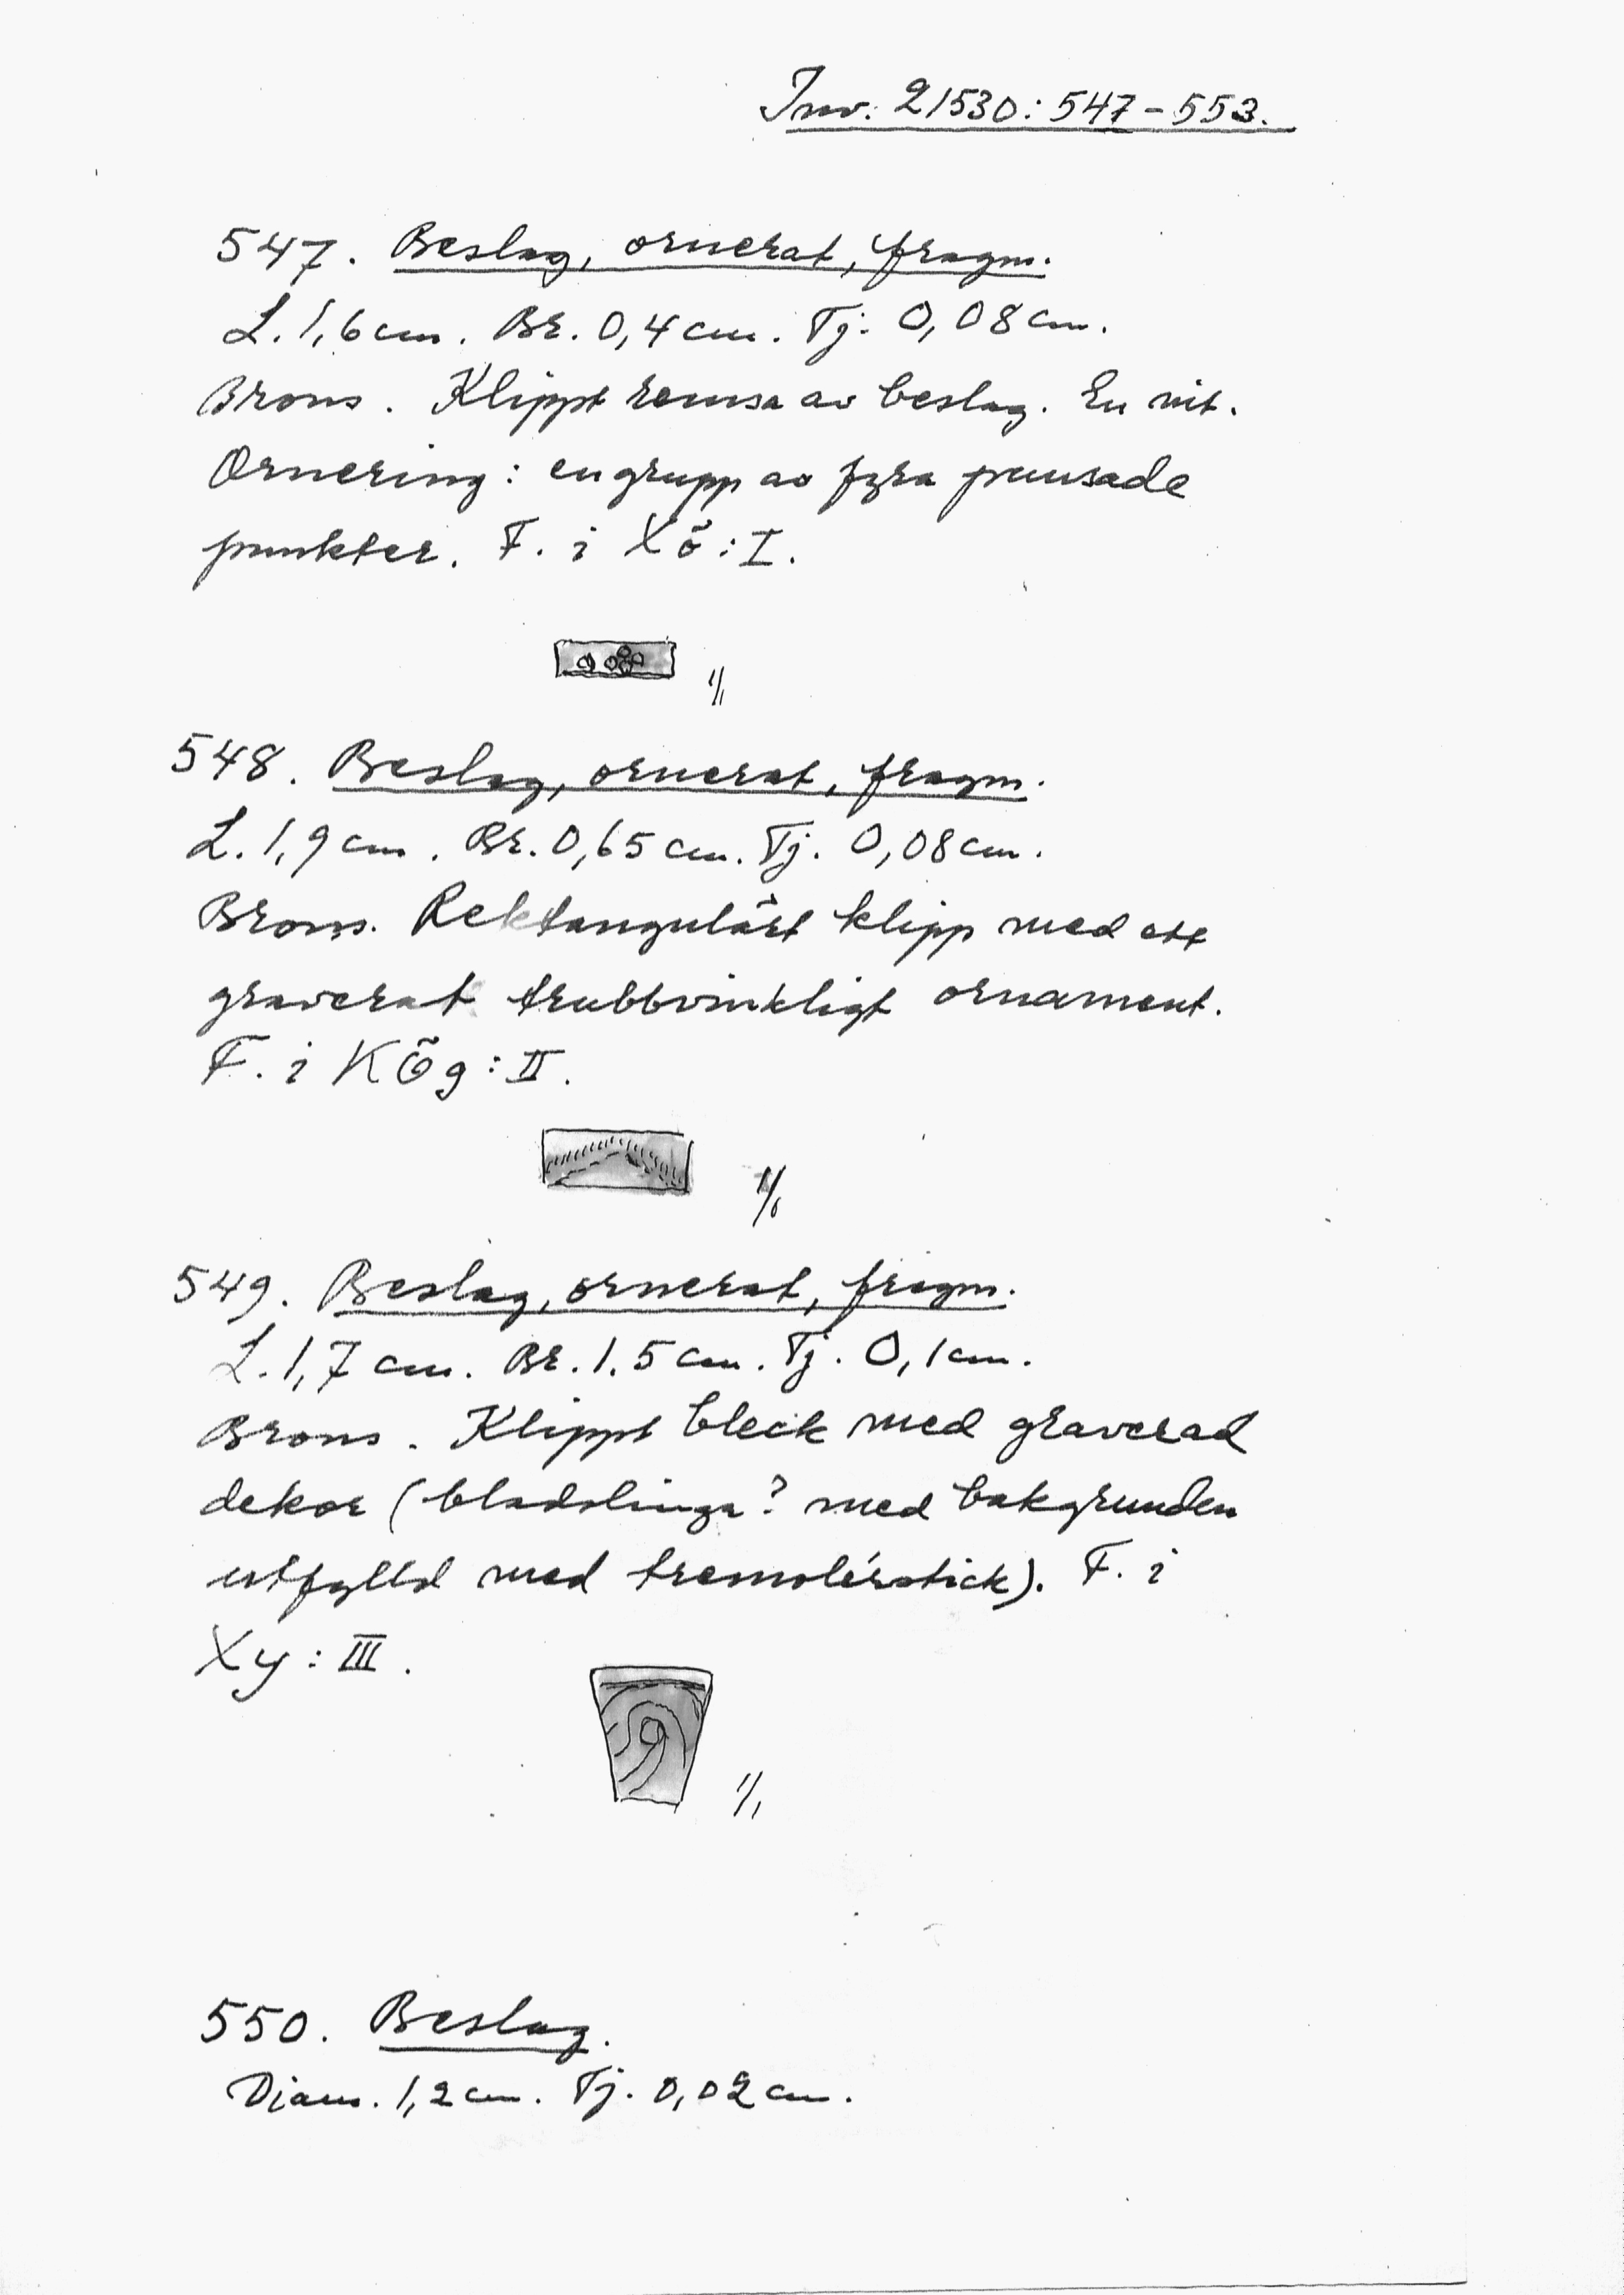 Inv. 21530:547-553.
547. Beslag, ornerat, fragm.
L. 1,6 cm. Br. 0,4 cm. Tj. 0,08 cm.
Brons. Klippt remsa av beslag. En nit.
Ornering: en grupp av fyra punsade
punkter. F. i Xõ:I.
1/1
548. Beslag, ornerat, fragm.
L. 1,9 cm. Br. 0,65 cm. Tj. 0,08 cm.
Brons. Rektangulärt klipp med ett
graverat trubbvinkligt ornament.
F. i KÕg:II.
1/1
549. Beslag, ornerat, fragm.
L. 1,7 cm. Br. 1,5 cm. Tj. 0,1 cm.
Brons. Klippt bleck med graverad
dekor (bladslinga? med bakgrunden
utfylld med tremolérstick). F. i
Xy:III.
1/1
550. Beslag.
Diam. 1,2 cm. Tj. 0,02 cm.